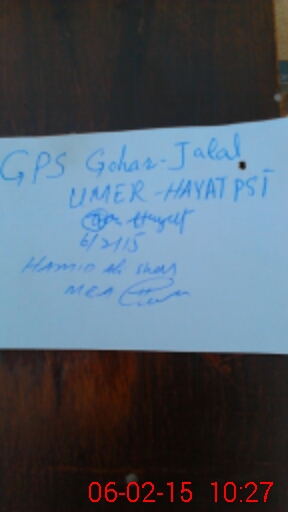 GPS Gohar-Jalal
UMER-HAYAT PST
Hayat
6/2/15
HAMID Ali Shah
MEA
06-02-15 10:27